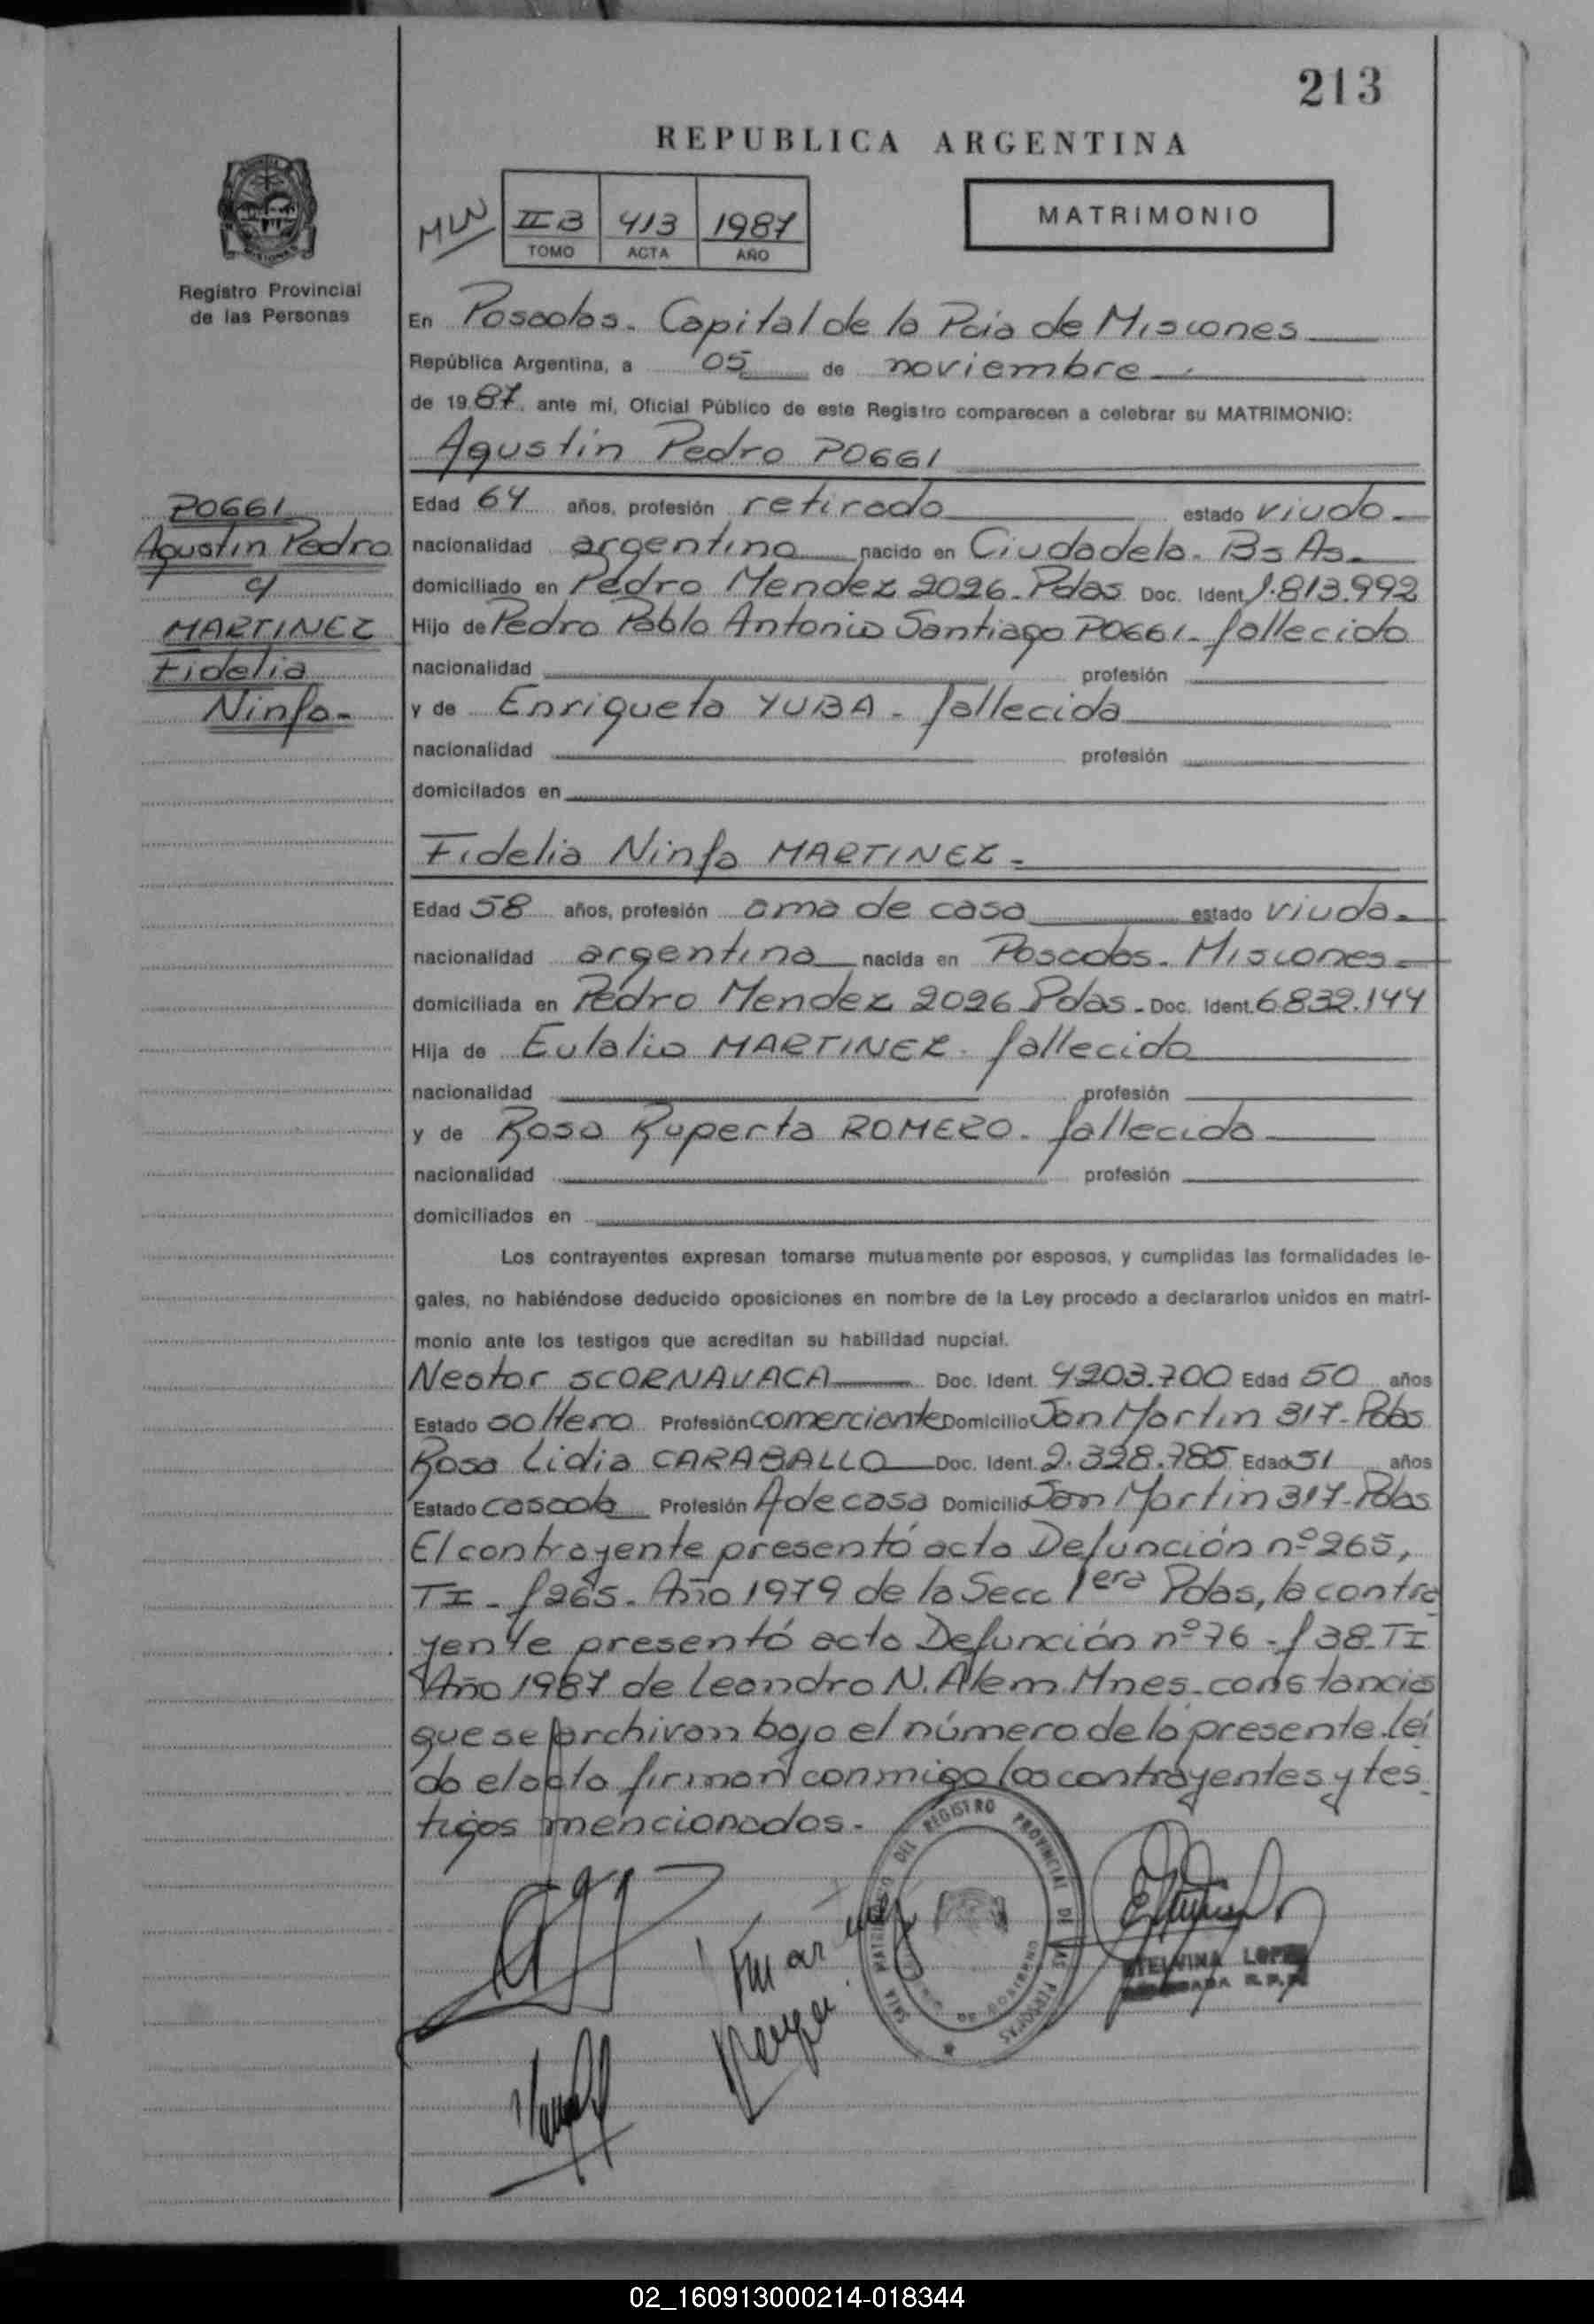 213
REPUBLICA ARGENTINA
MW
II B 413 1987
TOMO ACTA AÑO
MATRIMONIO
Registro Provincial
de las Personas
En Posadas. Capital de la Pcia de Misiones
República Argentina, a 05 de noviembre
de 1987 ante mí, Oficial Público de este Registro comparecen a celebrar su MATRIMONIO:
Agustin Pedro POGGI
POGGI
Agustin Pedro
c/
MARTINEZ
Fidelia
Ninfa-
Edad 64 años, profesión retirado estado viudo
nacionalidad argentina nacido en Ciudadela. Bs As.
domiciliado en Pedro Mendez 2026. Pdas Doc. Ident 1.813.992
Hijo de Pedro Pablo Antonio Santiago POGGI - fallecido
nacionalidad profesión
y de Enriqueta YUBA - fallecida
nacionalidad profesión
domicilados en
Fidelia Ninfa MARTINEZ -
Edad 58 años, profesión ama de casa estado viuda.
nacionalidad argentina nacida en Posadas. Misiones
domiciliada en Pedro Mendez 2026 Pdas - Doc. Ident. 6.832.144
Hija de Eulalio MARTINEZ - fallecido
nacionalidad profesión
y de Rosa Ruperta ROMERO. fallecida
nacionalidad profesión
domiciliados en
Los contrayentes expresan tomarse mutuamente por esposos, y cumplidas las formalidades le-
gales, no habiéndose deducido oposiciones en nombre de la Ley procedo a declararlos unidos en matri-
monio ante los testigos que acreditan su habilidad nupcial.
Nestor SCORNAVACA Doc. Ident. 4203.700 Edad 50 años
Estado soltero Profesión comerciante Domicilio San Martin 317-Pdas
Rosa Lidia CARABALLO Doc. Ident. 2.328.785 Edad 51 años
Estado casada Profesión A de casa Domicilio San Martin 317-Pdas
El contrayente presentó acta Defunción nº 265,
TI - f 265. Año 1979 de la Secc 1era Pdas, la contra
yente presentó acta Defunción nº 76 - f 38. TI
Año 1987 de Leandro N. Alem. Mnes. constancias
que se archivan bajo el número de la presente. Leí
do el acta firman conmigo los contrayentes y tes
tigos mencionados.
DEL REGISTRO PROVINCIAL DE LAS PERSONAS
ETELVINA LOPEZ
02_160913000214-018344